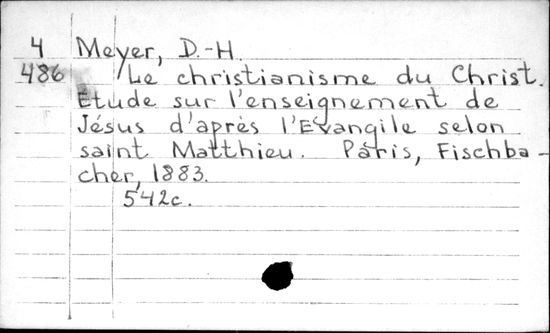 4 Meyer, D.-H.
486 Le christianisme du Christ.
Etude sur l'enseignement de
Jésus d'après l'Evangile selon
saint Matthieu. Paris, Fischba-
cher, 1883.
542c.